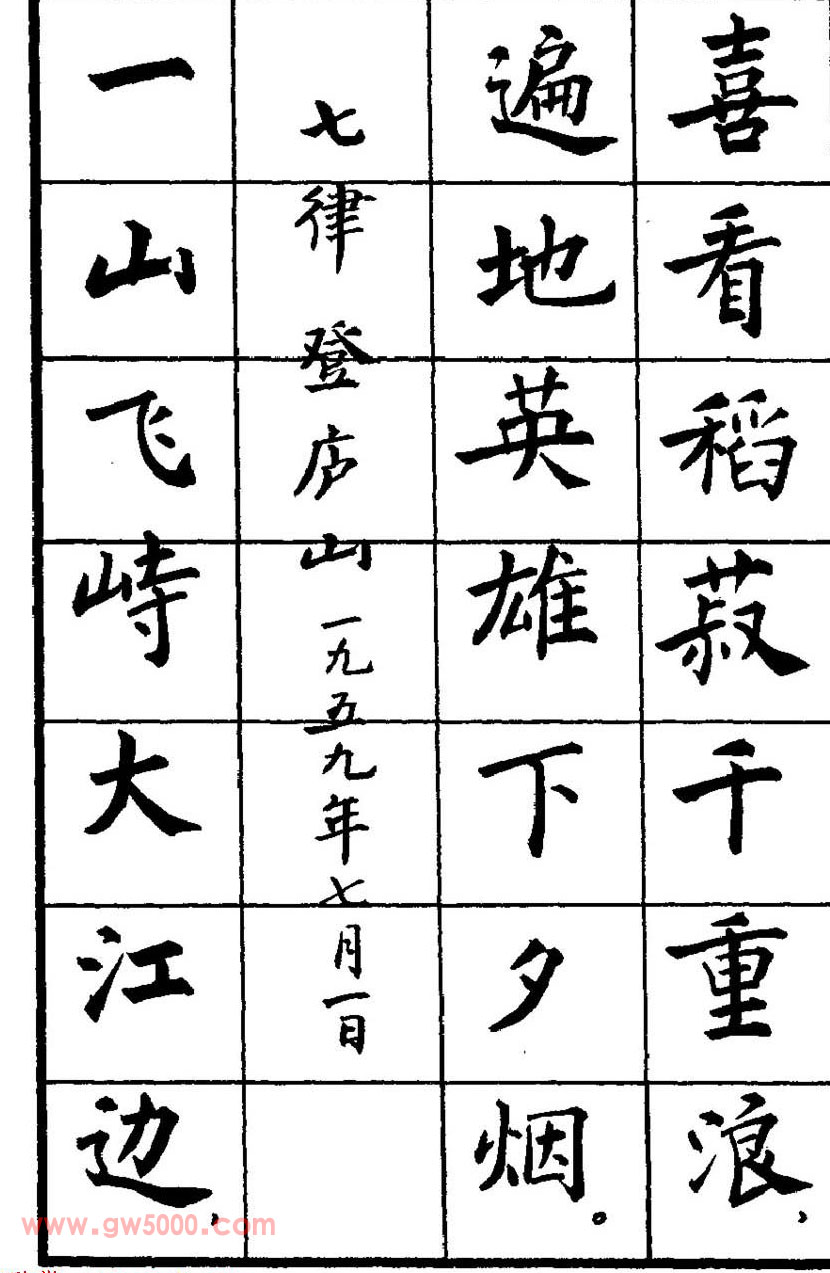 喜看稻菽千重浪，
遍地英雄下夕烟。
七律登庐山一九五九年七月一日
一山飞峙大江边，
www.gw5000.com